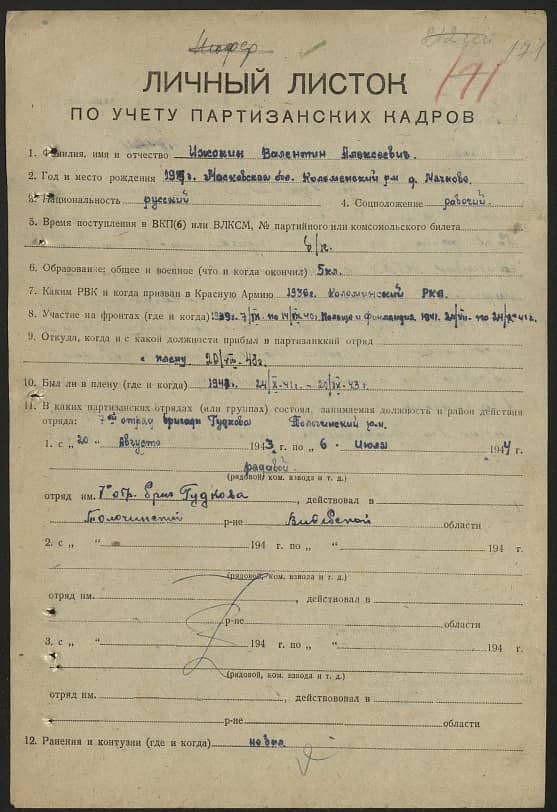 Шофер
171
191
ЛИЧНЫЙ ЛИСТОК
ПО УЧЕТУ ПАРТИЗАНСКИХ КАДРОВ
1. Фамилия, имя и отчество Ижокин Валентин Алексеевич.
2. Год и место рождения Московская обл. Коломенский р-н д. Мячково.
3. Национальность русский 4. Соцположение рабочий.
5. Время поступления в ВКП(б) или ВЛКСМ, № партийного или комсомольского билета
б/п.
6. Образование: общее и военное (что и когда окончил) 5кл.
7. Каким РВК и когда призван в Красную Армию 1936г. Коломинский РКВ.
8. Участие на фронтах (где и когда) 1939г. Польша и Финландия. 1941.
9. Откуда, когда и с какой должности прибыл в партизанский отряд
с плену 20/VIII-43г.
10. Был ли в плену (где и когда) 24/X-41г. - 20/VIII-43г.
11. В каких партизанских отрядах (или группах) состоял, занимаемая должность и район действия
отряда: 7ой отряд бригады Гудкова Толочинский р.н.
1. с „20 „ Августо 1943 г. по „ 6 „ Июля 1944 г.
редавой
(рядовой, ком. взвода и т. д.)
отряд им. 7й отр. бриг Гудкова, действовал в
Толочинский р-не Витебской области
2. с „ “ 194 г. по „ “ 194 г.
(рядовой, ком. взвода и т. д.)
отряд им. , действовал в
р-не области
3. с „ “ 194 г. по „ “ 194 г.
(рядовой, ком. взвода и т. д.)
отряд им. , действововал в
р-не области
12. Ранения и контузии (где и когда) не был